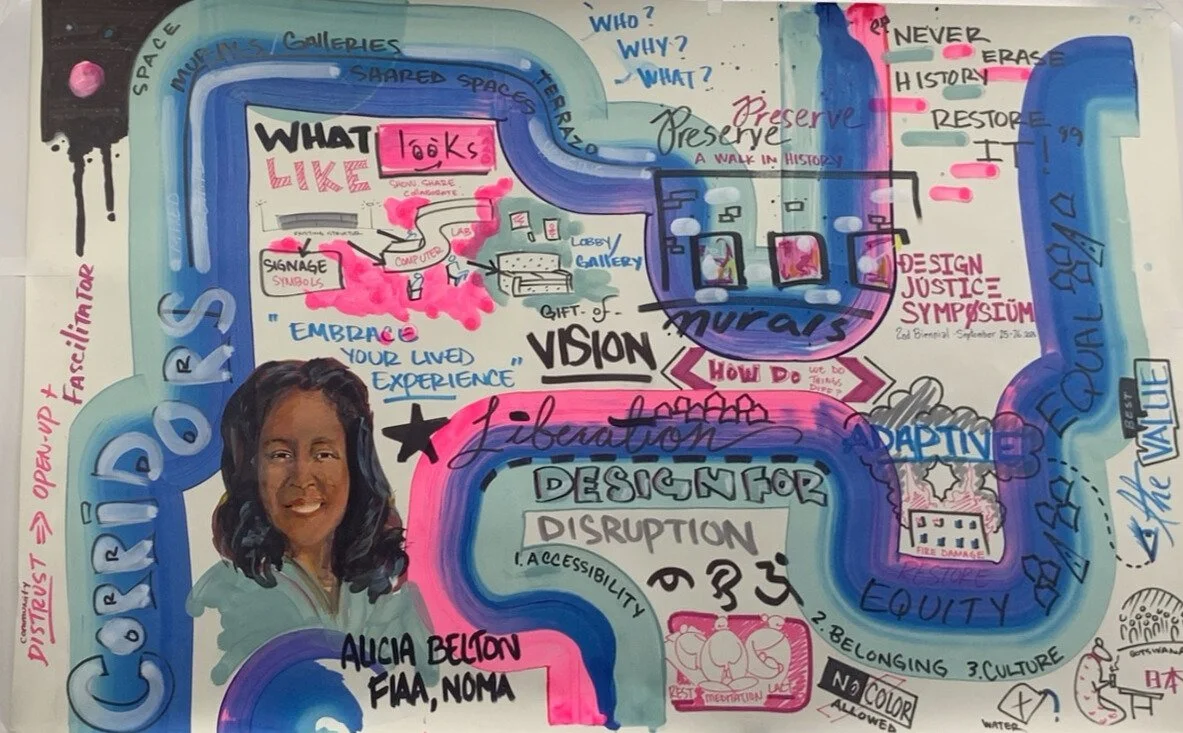 SPACE
MURALS / GALLERIES
SHARED SPACES
TERRAZO
CORRiDORS
"WHO?
WHY?
WHAT?
WHAT looks
LIKE
SHOW. SHARE.
COLLABORATE.
EXISTING STRUCTURE
SIGNAGE
SYMBOLS
COMPUTER
LAB
LOBBY/
GALLERY
"EMBRACE
YOUR LIVED
EXPERIENCE"
GIFT-of-
VISION
Preserve
Preserve
A WALK IN HISTORY
murals
"NEVER
ERASE
HISTORY
RESTORE
IT!"
DESIGN
JUSTICE
SYMPØSIÜM
2nd Biennial · September 25-26
HOW DO WE DO
THINGS
DIFF?
Liberation
DESIGN FOR
DISRUPTION
1. ACCESSIBILITY
2. BELONGING 3. CULTURE
REST MEDITATION
NO COLOR
ALLOWED
ADAPTIVE
FIRE DAMAGE
RESTORE
EQUITY
EQUAL
BEST
VALUE
of the
BOTSWANA
日本
WATER
Fascilitator
Community
DISTRUST => OPEN-UP +
ALICIA BELTON
FIAA, NOMA